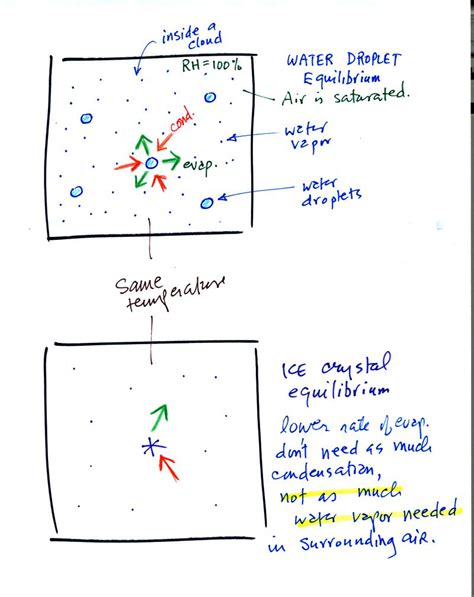 inside a
cloud
RH=100%
WATER DROPLET
Equilibrium
Air is saturated.
cond.
water
vapor
evap.
water
droplets
Same
temperature
ICE crystal
equilibrium
lower rate of evap.
don't need as much
condensation,
not as much
water vapor needed
in surrounding air.